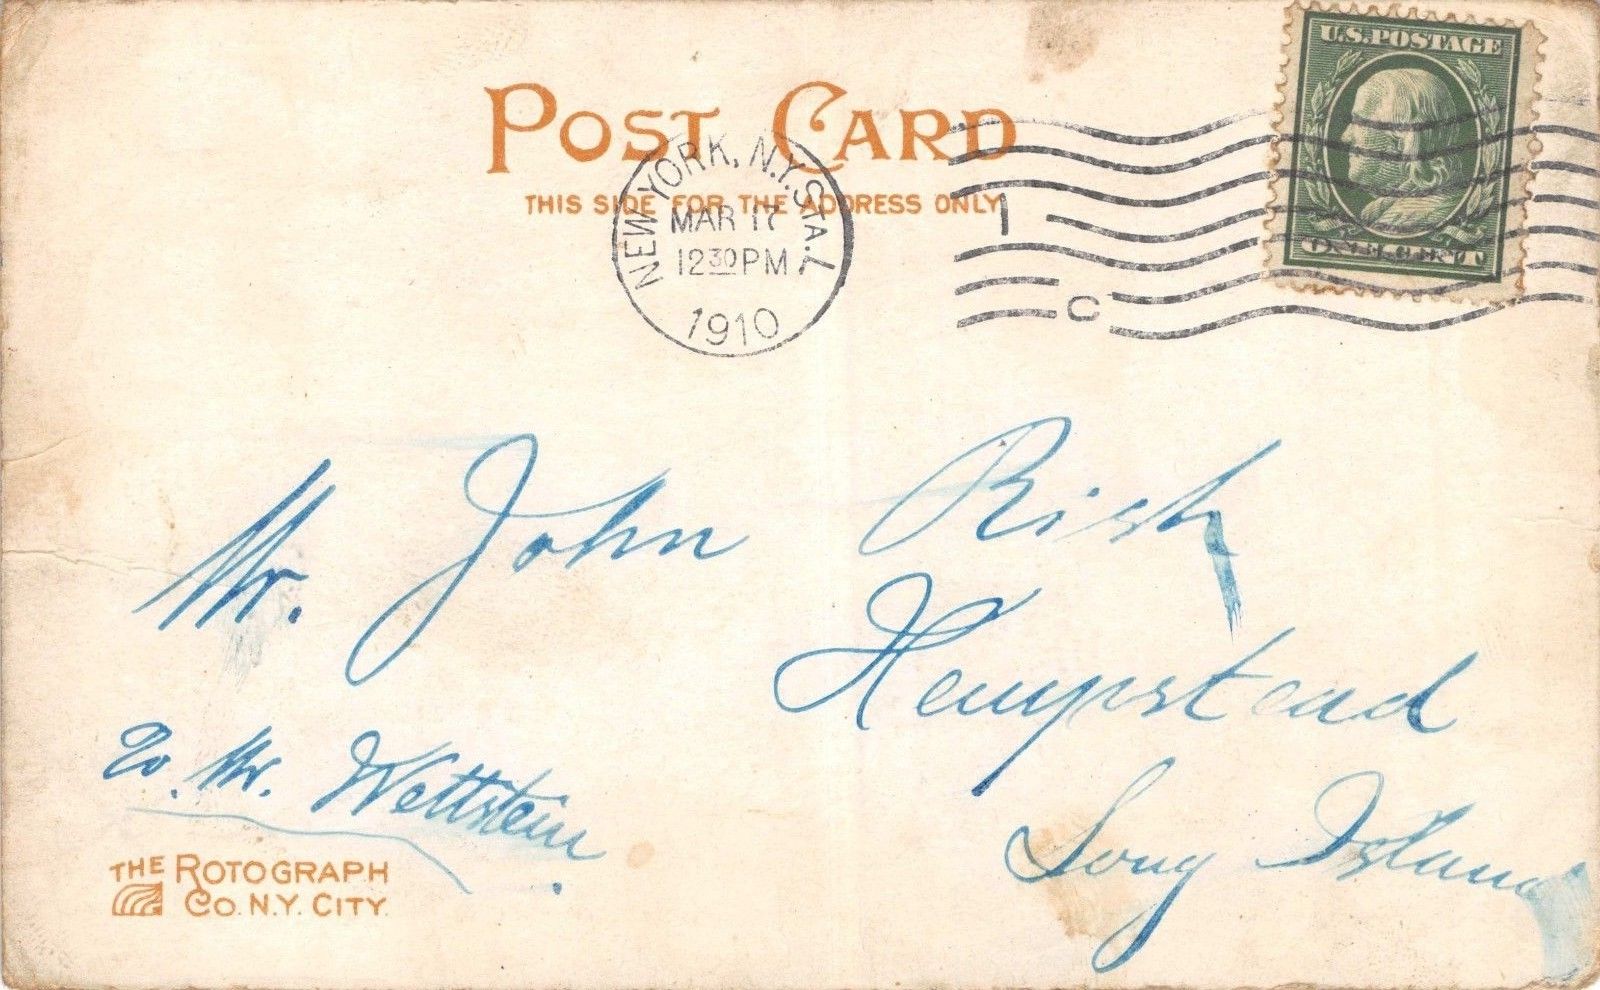 U.S. POSTAGE
POST CARD
THIS SIDE FOR THE ADDRESS ONLY
NEW YORK, N.Y. STA. L
MAR 17
12 30 PM
1910
1
C
Mr. John Rish
Hempstead
Long Island
Co. Mr. Wettstein
THE ROTOGRAPH
CO. N.Y. CITY.